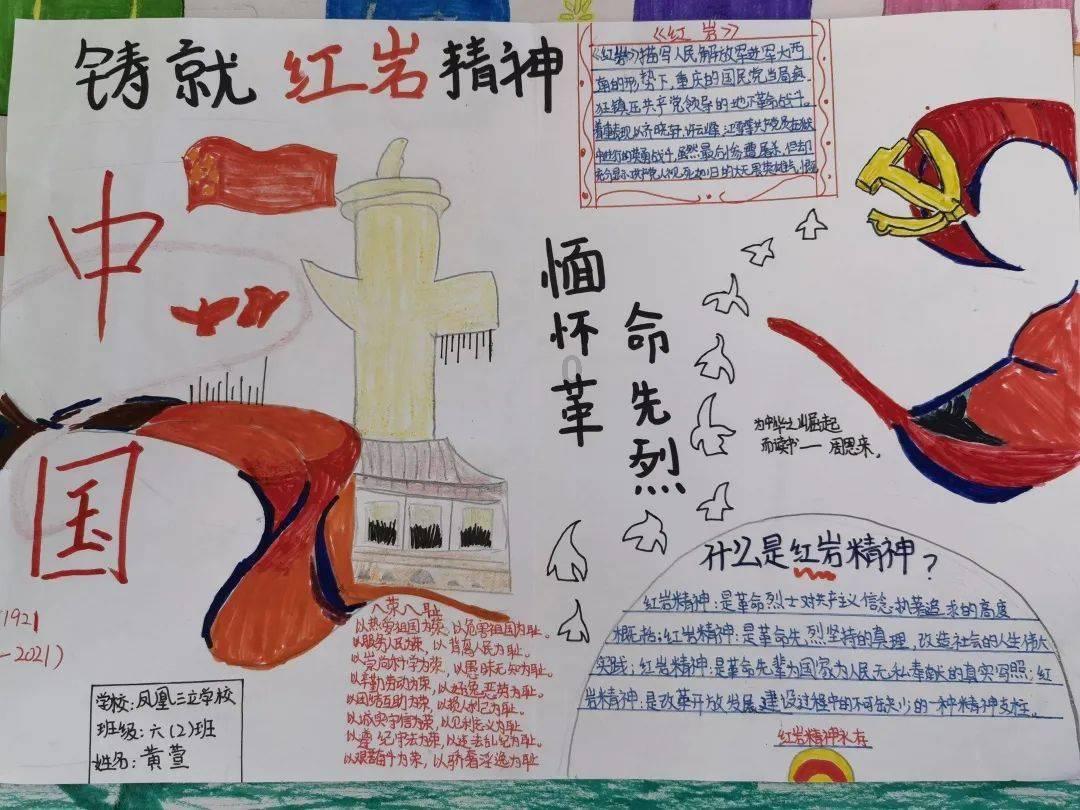 铸就红岩精神
《红岩》
《红岩》描写人民解放军进军大西
南的形势下,重庆的国民党当局疯
狂镇压共产党领导的地下革命战斗。
着重表现以齐晓轩、许云峰、江雪琴共产党员在狱
中进行的英勇战斗,虽然最后惨遭屠杀,但却
充分显示共产党人视死如归的大无畏英雄气慨
中
国
缅怀革
命先烈
为中华之崛起
而读书——周恩来。
什么是红岩精神?
红岩精神:是革命烈士对共产主义信念执着追求的高度
概括;红岩精神:是革命先烈坚持的真理,改造社会的人生伟大
实践;红岩精神:是革命先辈为国家为人民无私奉献的真实写照;红
岩精神:是改革开放发展建设过程中的不可缺少的一种精神支柱。
红岩精神永存
1921
-2021)
八荣八耻
以热爱祖国为荣,以危害祖国为耻。
以服务人民为荣,以背离人民为耻。
以崇尚科学为荣,以愚昧无知为耻。
以辛勤劳动为荣,以好逸恶劳为耻。
以团结互助为荣,以损人利己为耻。
以诚实守信为荣,以见利忘义为耻
以遵纪守法为荣,以违法乱纪为耻。
以艰苦奋斗为荣,以骄奢淫逸为耻
学校:凤凰三立学校
班级:六(2)班
姓名:黄萱